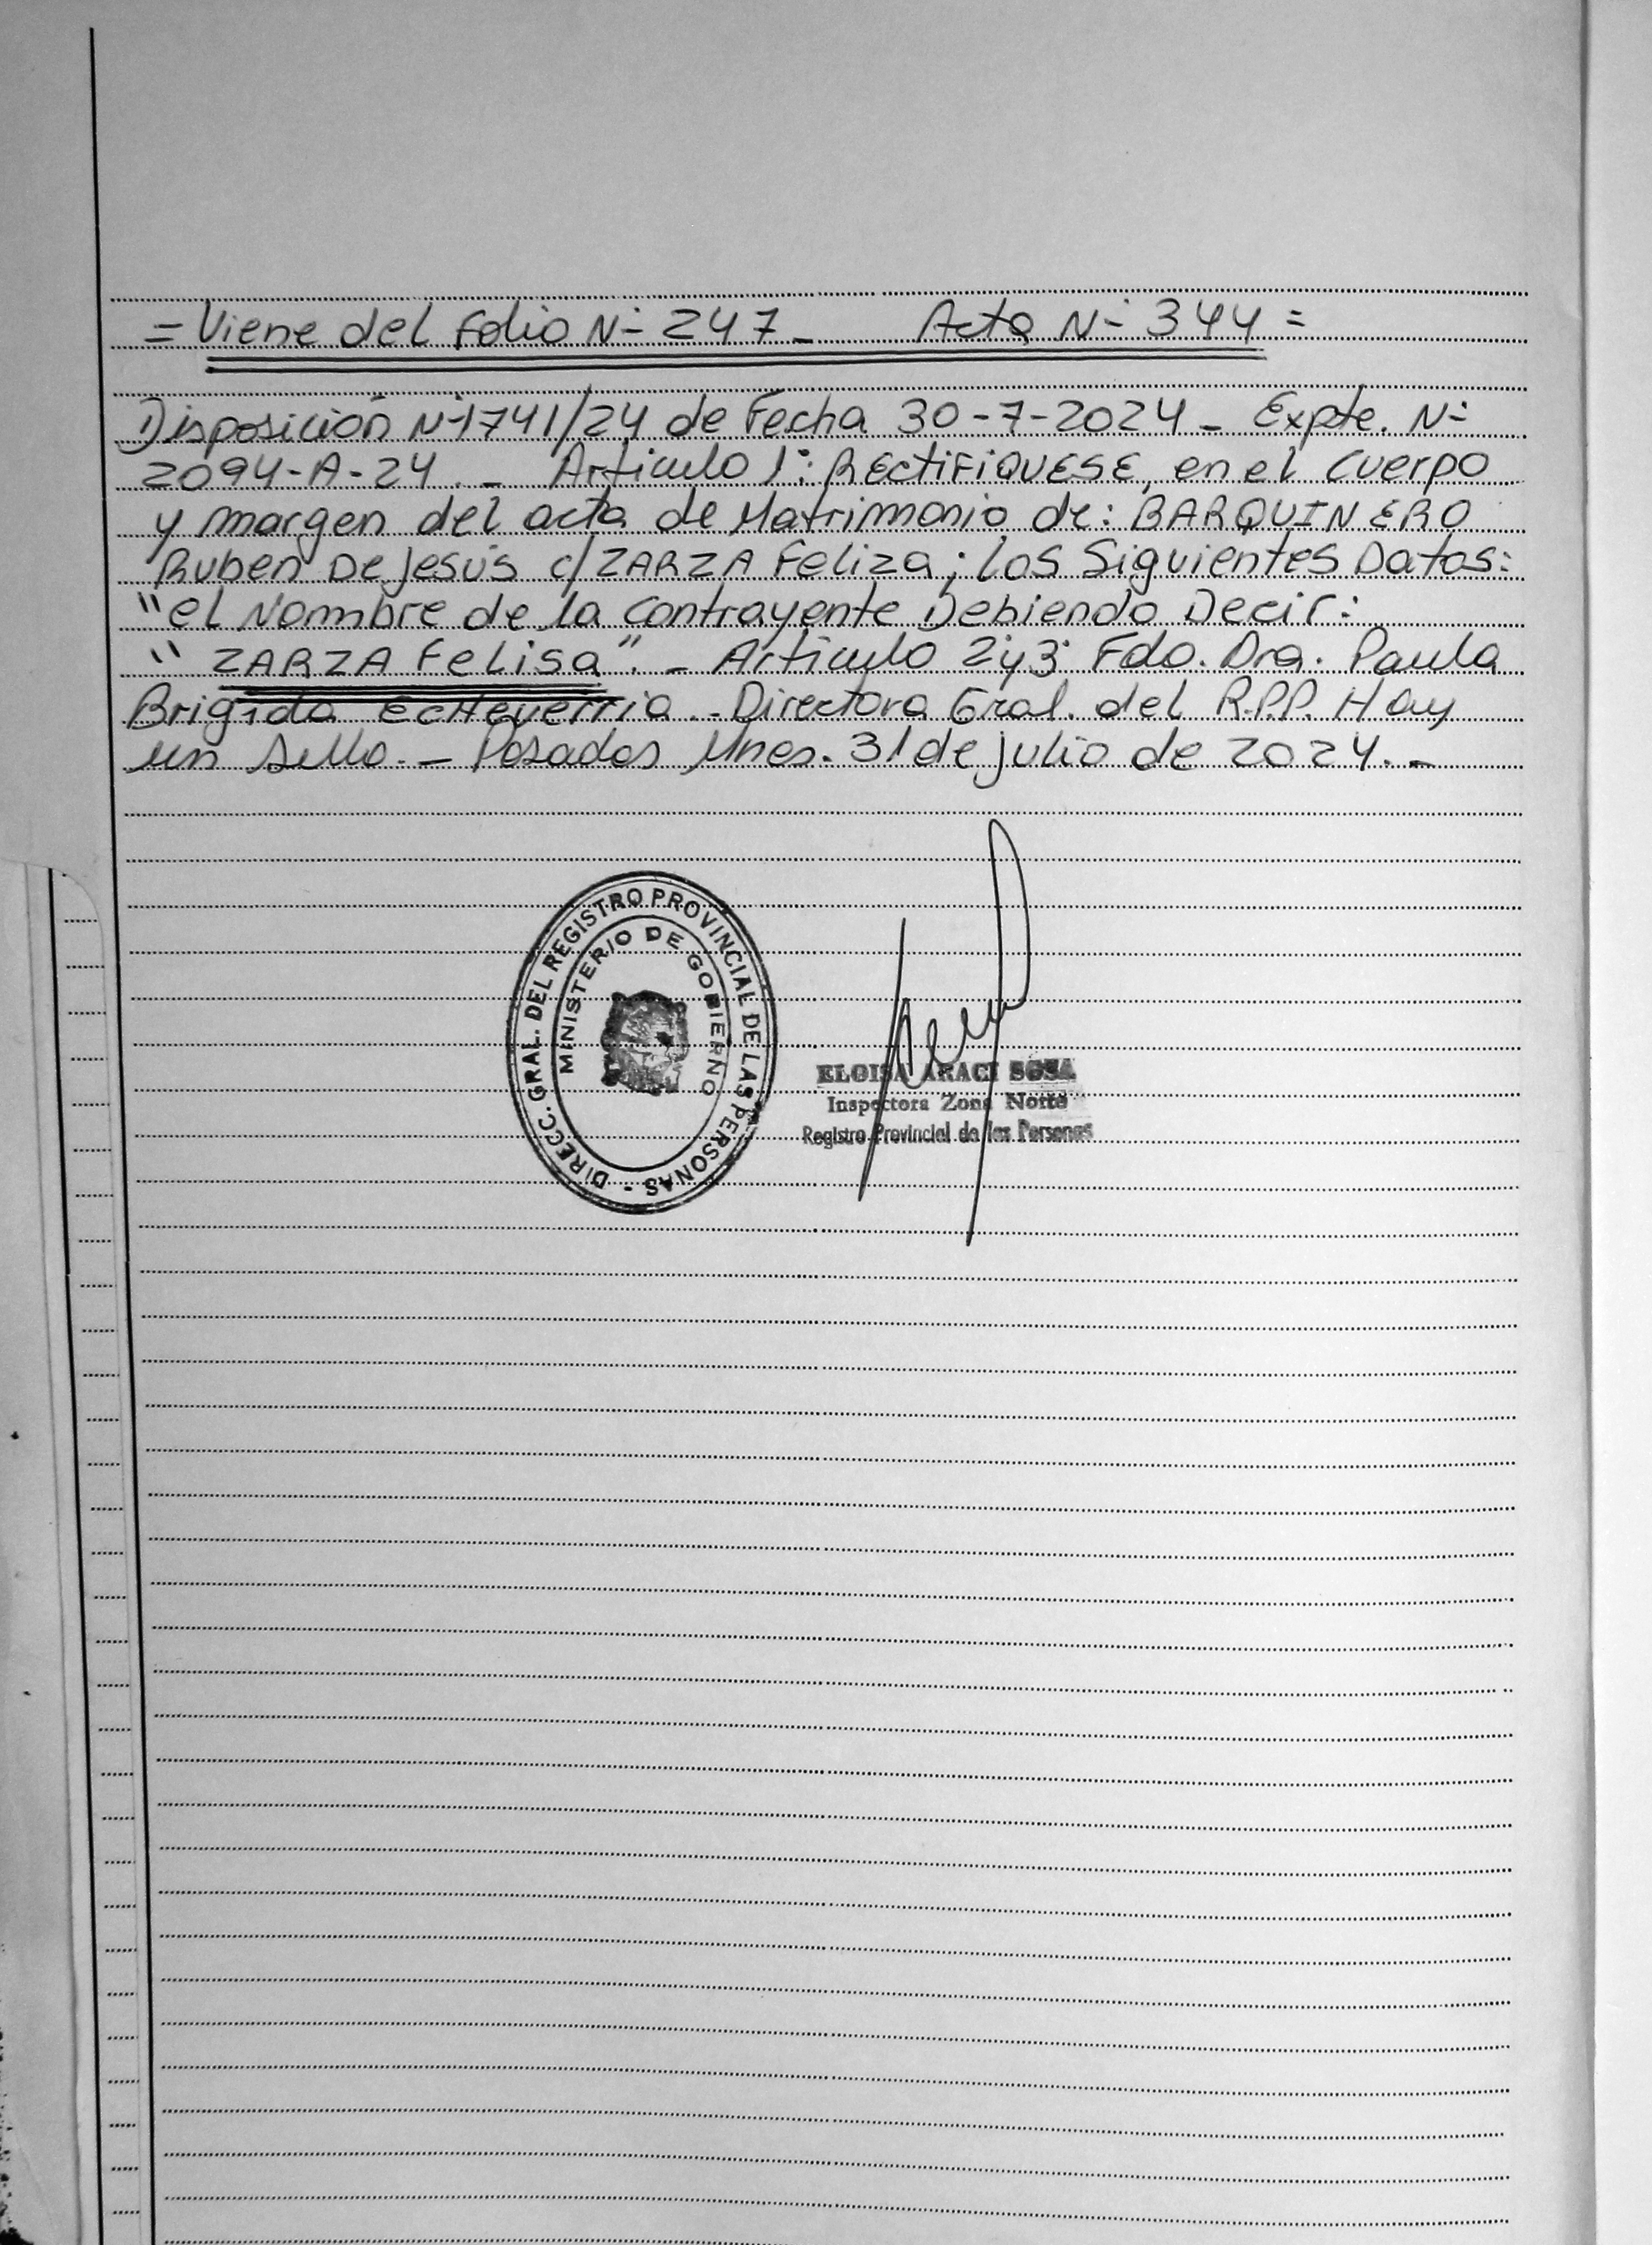 = Viene del Folio N- 247 - Acta N- 344 =
Disposición N-1741/24 de Fecha 30-7-2024 - Expte. N-
2094-A-24. - Articulo 1: RECTIFIQUESE, en el Cuerpo
y margen del acta de Matrimonio de: BARQUINERO
Ruben De Jesús c/ ZARZA Feliza; Los Siguientes Datos:
"el Nombre de la Contrayente Debiendo Decir:
" ZARZA Felisa". - Articulo 2 y 3 Fdo. Dra. Paula
Brigida Echeverria - Directora Gral. del R.P.P. Hay
un sello. - Posadas Mnes. 31 de julio de 2024. -
DIRECC. GRAL. DEL REGISTRO PROVINCIAL DE LAS PERSONAS -
MINISTERIO DE GOBIERNO
ELOISA ARACI SOSA
Inspectora Zona Norte
Registro Provincial de las Personas